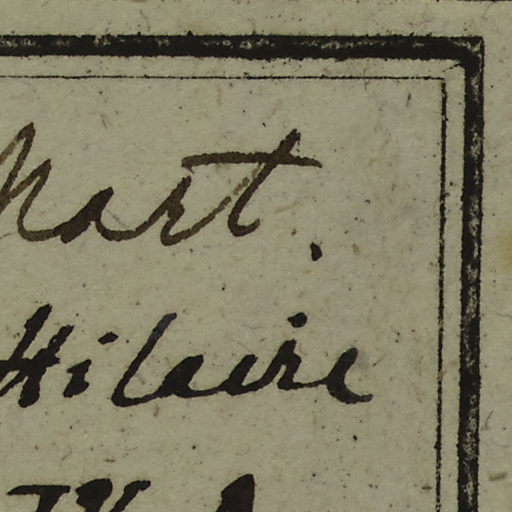 Mart.
Hilaire